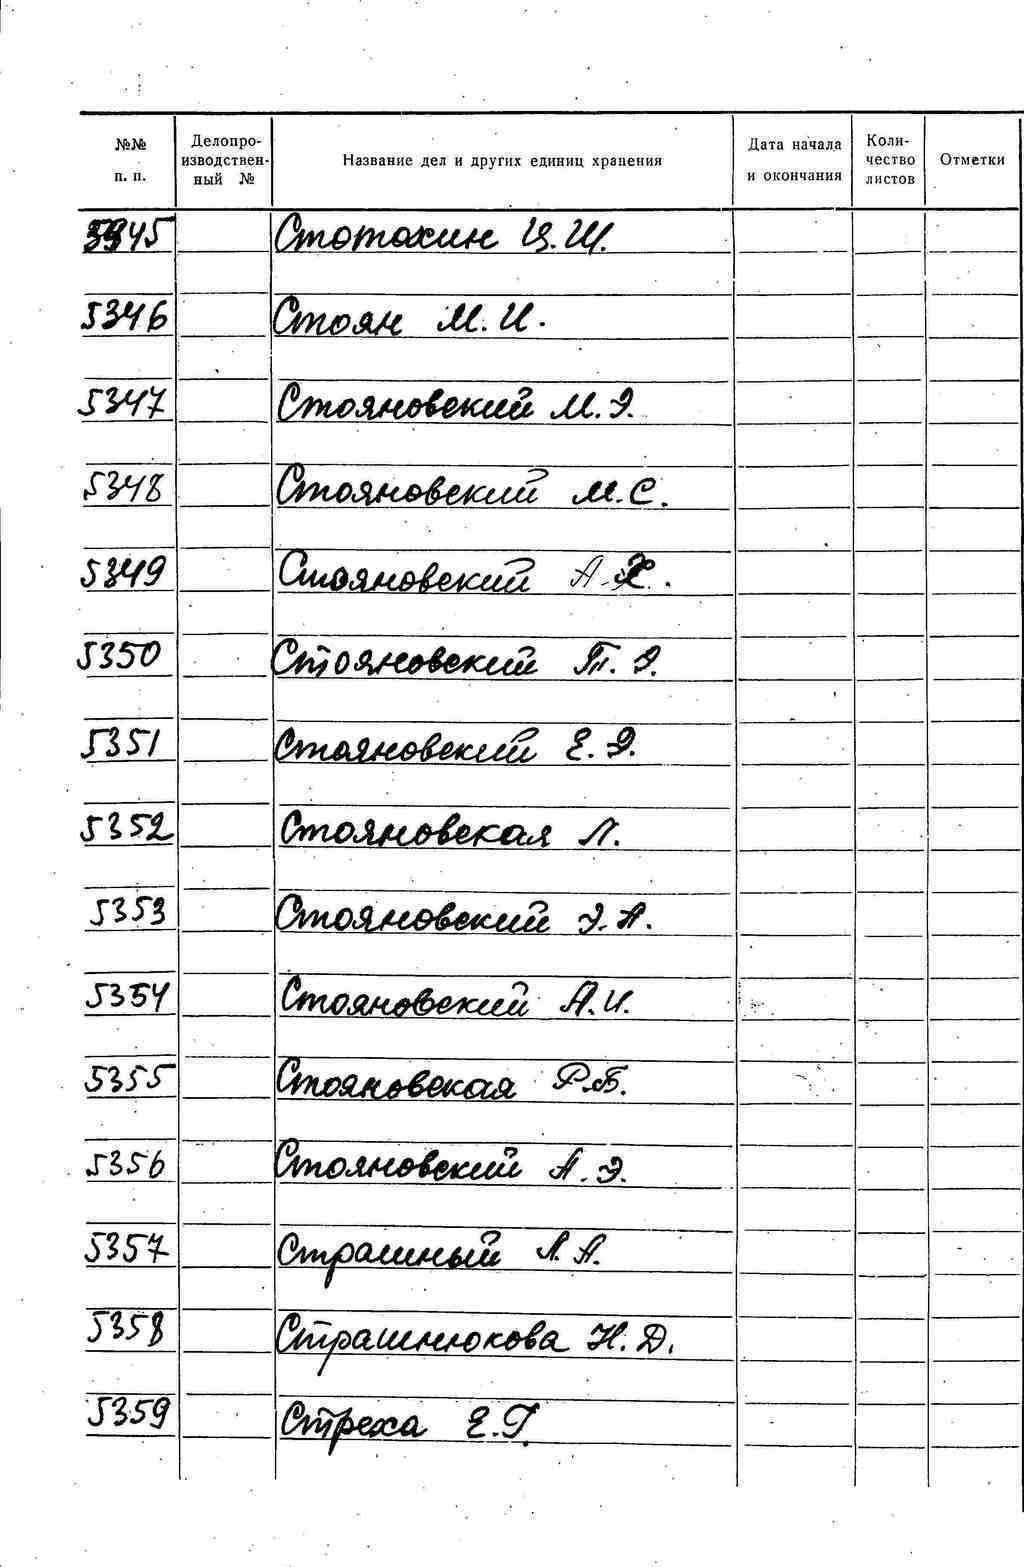 №№ п. п. Делопроизводственный № Название дел и других единиц хранения Дата начала и окончания Количество листов Отметки
5345 Стотохин Ц. Ш.
5346 Стоян М. И.
5347 Стояновский М. Э.
5348 Стояновский М. С.
5349 Стояновский А. Х.
5350 Стояновский Т. Э.
5351 Стояновский Е. Э.
5352 Стояновская Л.
5353 Стояновский Э. А.
5354 Стояновский А. И.
5355 Стояновская Р. Б.
5356 Стояновский А. Э.
5357 Страшный Л. А.
5358 Страшнюкова Н. Д.
5359 Стреха Е. Г.